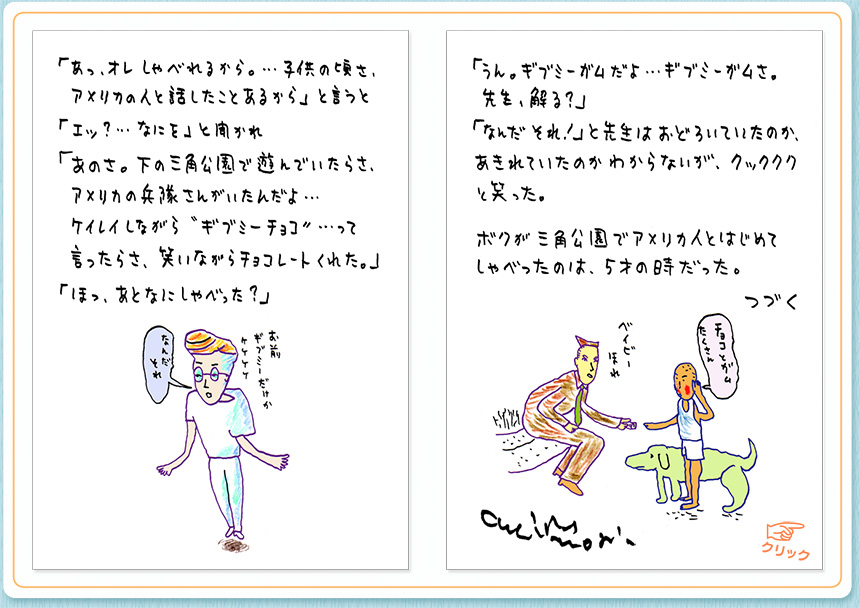 「あっ、オレしゃべれるから。…子供の頃さ、
アメリカの人と話したことあるから」と言うと
「エッ?…なにを」と聞かれ
「あのさ。下の三角公園で遊んでいたらさ、
アメリカの兵隊さんがいたんだよ…
ケイレイしながら〝ギブミーチョコ〟…って
言ったらさ、笑いながらチョコレートくれた。」
「ほっ、あとなにしゃべった?」
なんだ
それ
お前
ギブミーだけか
ケケケッ
「うん。ギブミーガムだよ…ギブミーガムさ。
先生、解る?」
「なんだそれ!」と先生はおどろいていたのか、
あきれていたのかわからないが、クックククク
と笑った。
ボクが三角公園でアメリカ人とはじめて
しゃべったのは、5才の時だった。
つづく
ベイビー
ほれ
チョコとガム
たくさん
クリック